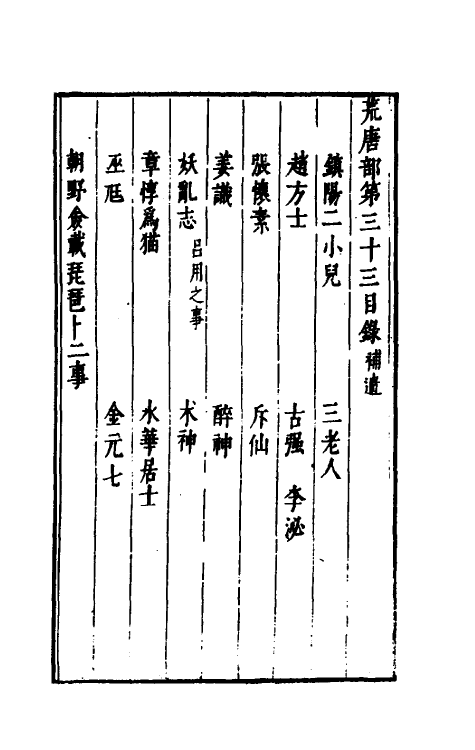 荒唐部第三十三目錄補遺
鎮陽二小兒 三老人
趙方士 古强 李泌
張懷素 斥仙
姜識 醉神
妖亂志 呂用之事 木神
章惇爲猫 水華居士
巫尫 金元七
朝野僉載琵琶卜二事